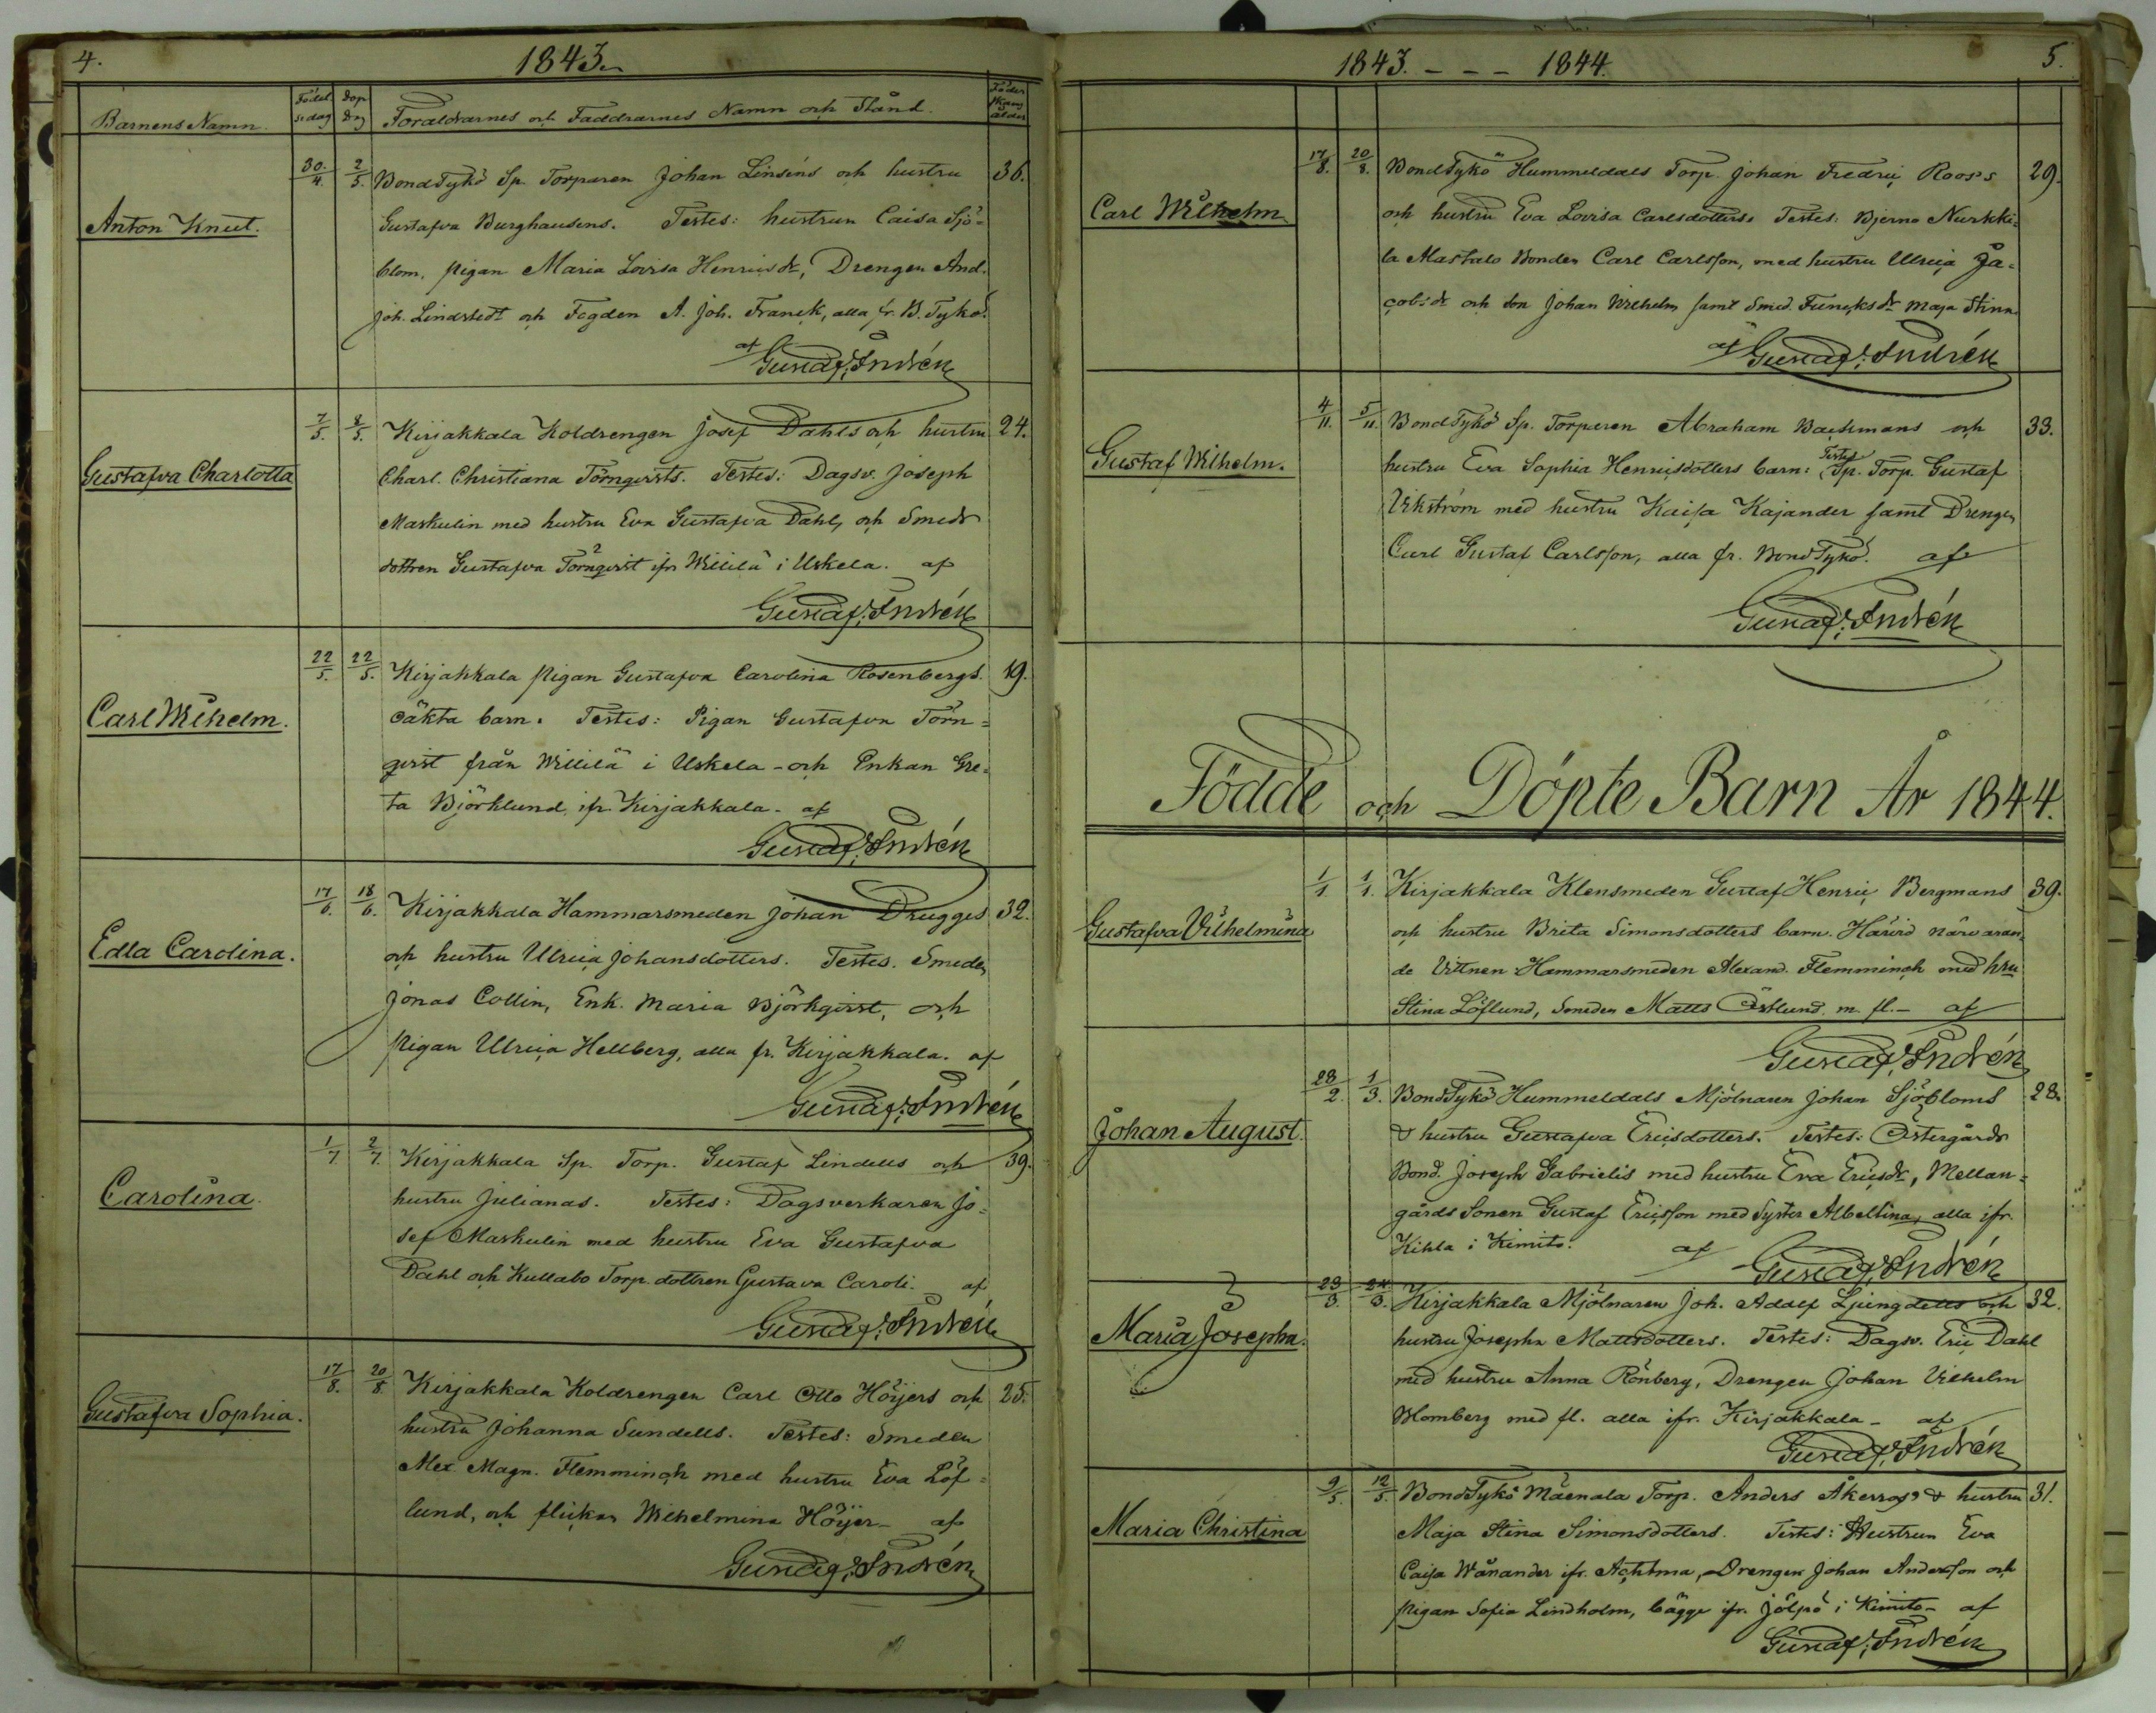 4.
1843.
Barnens Namn.
Födel
sedag
Dop
dag
Föräldrarnes och Faddrarnes Namn och Stånd.
ålder
Anton Knut.
30/4. 2/5. BondTykö Sp. Torparen Johan Linséns och hustru 36.
Gustafva Burghausens. Testes: hustrun Caisa Sjö=
blom, pigan Maria Lovisa Henricsdr, Drengen And.
Joh. Lindstedt och Fogden A. Joh. Franck, alla fr. B. Tykö.
af
Gustaf Andrén
Gustafva Charlotta
7/5. 8/5. Kirjakkala Koldrengen Josef Dahls och hustru 24.
Charl. Christiana Törnqvists. Testes: Dagsv. Joseph
Maskulin med hustru Eva Gustafva Dahl, och Smeds
dottren Gustafva Törnqvist ifr. Wililä i Uskela. af
Gustaf Andrén
Carl Wilhelm.
22/5. 22/5. Kirjakkala Pigan Gustafva Carolina Rosenbergs. 19.
oäkta barn. Testes: Pigan Gustafva Törn=
qvist från Wililä i Uskela - och Enkan Gre=
ta Björklund ifr. Kirjakkala. af
Gustaf Andrén
Edla Carolina.
17/6. 18/6. Kirjakkala Hammarsmeden Johan Drugges 32.
och hustru Ulrica Johansdotters. Testes. Smeden
Jonas Collin, Enk. Maria Björkqvist, och
Pigan Ulrica Hellberg, alla fr. Kirjakkala. af
Gustaf Andrén
Carolina.
1/7. 2/7. Kirjakkala Sp. Torp. Gustaf Lindells och 39.
hustru Julianas. Testes: Dagsverkaren Jo=
sef Maskulin med hustru Eva Gustafva
Dahl och Kullabo Torp. dottren Gustava Caroli. af
Gustaf Andrén
Gustafva Sophia.
17/8. 20/8. Kirjakkala Koldrengen Carl Otto Höijers och 25.
hustru Johanna Sundells. Testes: Smeden
Alex. Magn. Flemminck med hustru Eva Löf=
lund, och flickan Wilhelmina Höijer - af
Gustaf Andrén
1843. - - - 1844.
5.
Carl Wilhelm
17/8. 20/8. BondTykö Hummeldals Torp. Johan Fredric Roos's 29.
och hustru Eva Lovisa Carlsdotters. Testes: Bjerno Nurkki=
la Mastalo Bonden Carl Carlsson, med hustru Ulrica Ja=
cobsdr och son Johan Wilhelm samt Smed. Funcks dr Maja Stina.
af
Gustaf Andrén
Gustaf Wilhelm.
4/11. 5/11. BondTykö Sp. Torparen Abraham Backmans och 33.
hustru Eva Sophia Henricsdotters barn: Testes Sp. Torp. Gustaf
Vikström med hustru Kaisa Kajander samt Drengen
Carl Gustaf Carlsson, alla fr. BondTykö. af
Gustaf Andrén
Födde och Döpte Barn År 1844.
Gustafva Vilhelmina
1/1. 1/1. Kirjakkala Klensmeden Gustaf Henric Bergmans 39.
och hustru Brita Simonsdotters barn. Härvid närvaran=
de Vittnen Hammarsmeden Alexand. Flemminck med hru
Stina Löflund, Smeden Matts Östlund m. fl. - af
Gustaf Andrén
Johan August.
28/2. 1/3. BondTykö Hummeldals Mjölnaren Johan Sjöbloms 28.
& hustru Gustafva Ericsdotters. Testes: Östergårds
Bond. Joseph Gabrielis med hustru Eva Ericsdr, Mellan=
gårds Sonen Gustaf Ericsson med Syster Albertina, alla ifr.
Kihla i Kimito. af
Gustaf Andrén
Maria Josepha.
23/3. 24/3. Kirjakkala Mjölnaren Joh. Adolf Ljungdells och 32.
hustru Josepha Mattsdotters. Testes: Dagsv. Eric Dahl
med hustru Anna Rönberg, Drengen Johan Vilhelm
Blomberg med fl. alla ifr. Kirjakkala - af
Gustaf Andrén
Maria Christina
9/5. 12/5. BondTykö Mäenala Torp. Anders Åkerros's & hustru 31.
Maja Stina Simonsdotters. Testes: Hustrun Eva
Caisa Wånander ifr. Achtma, Drengen Johan Andersson och
pigan Sofia Lindholm, bägge ifr. Jölpö i Kimito - af
Gustaf Andrén